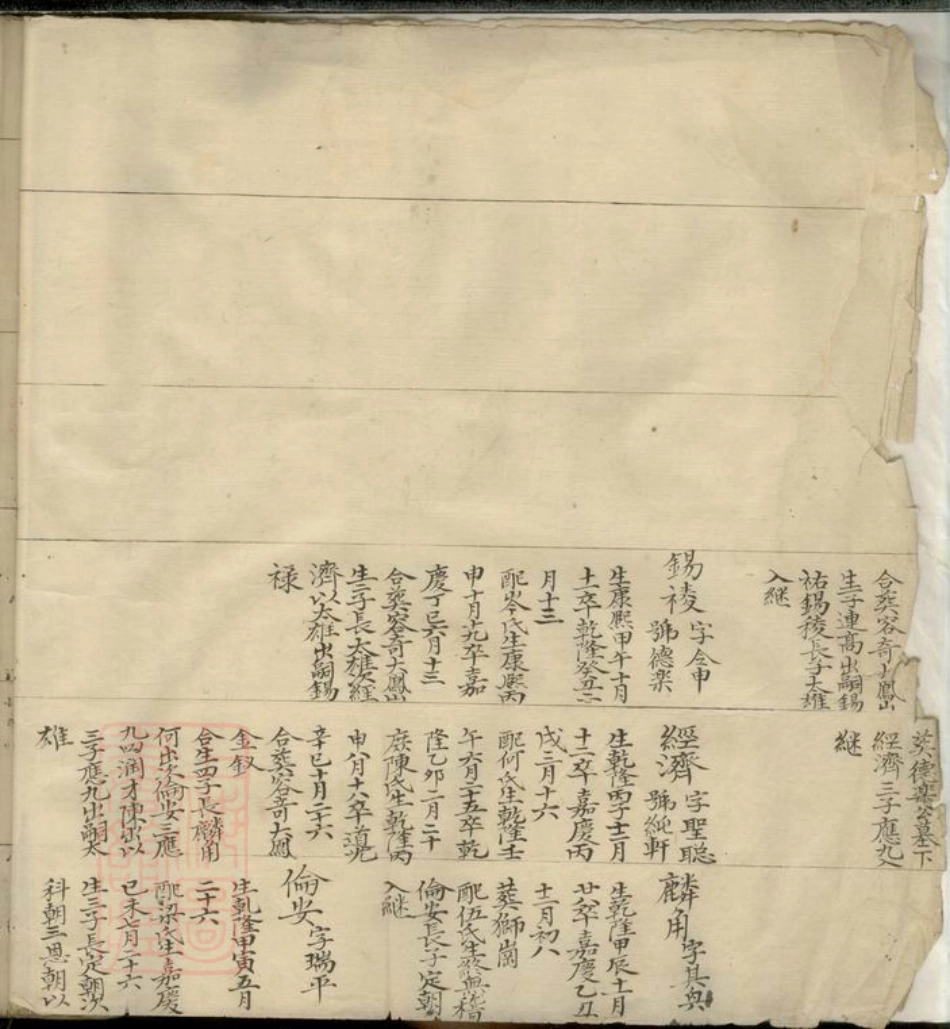 合葬容奇大鳳山
生子連高出嗣錫
祐錫稜長子大雄
入継
錫稜字令申
號德楽
生康熙甲午十月
十一卒乾隆癸丑二
月十三
配岑氏生康熙丙
申十月十九卒嘉
慶丁巳六月十三
合葬容奇大鳳山
生三子長大雄次経
濟以大雄出嗣錫
禄
葬德楽公墓下
經濟三子應九入
継
經濟字聖聪
號純軒
生乾隆丙子十二月
十二卒嘉慶丙
戌三月十六
配何氏生乾隆壬
午六月二十五卒乾
隆乙卯二月二十
庶陳氏生乾隆丙
申八月十八卒道光
辛巳十月二十六
合葬容奇大鳳
金釵
合生四子長麟角
何出次倫安三應
九四潤才陳出以
三子應九出嗣大
雄
麟角字其與
生乾隆甲辰十一月
廿八卒嘉慶乙丑
十二月初八
葬獅崗
配伍氏生終無稽
倫安長子定朝
入継
倫安字瑞平
生乾隆甲寅五月
二十六
配梁氏生嘉慶
己未七月二十六
生三子長定朝次
科朝三恩朝以